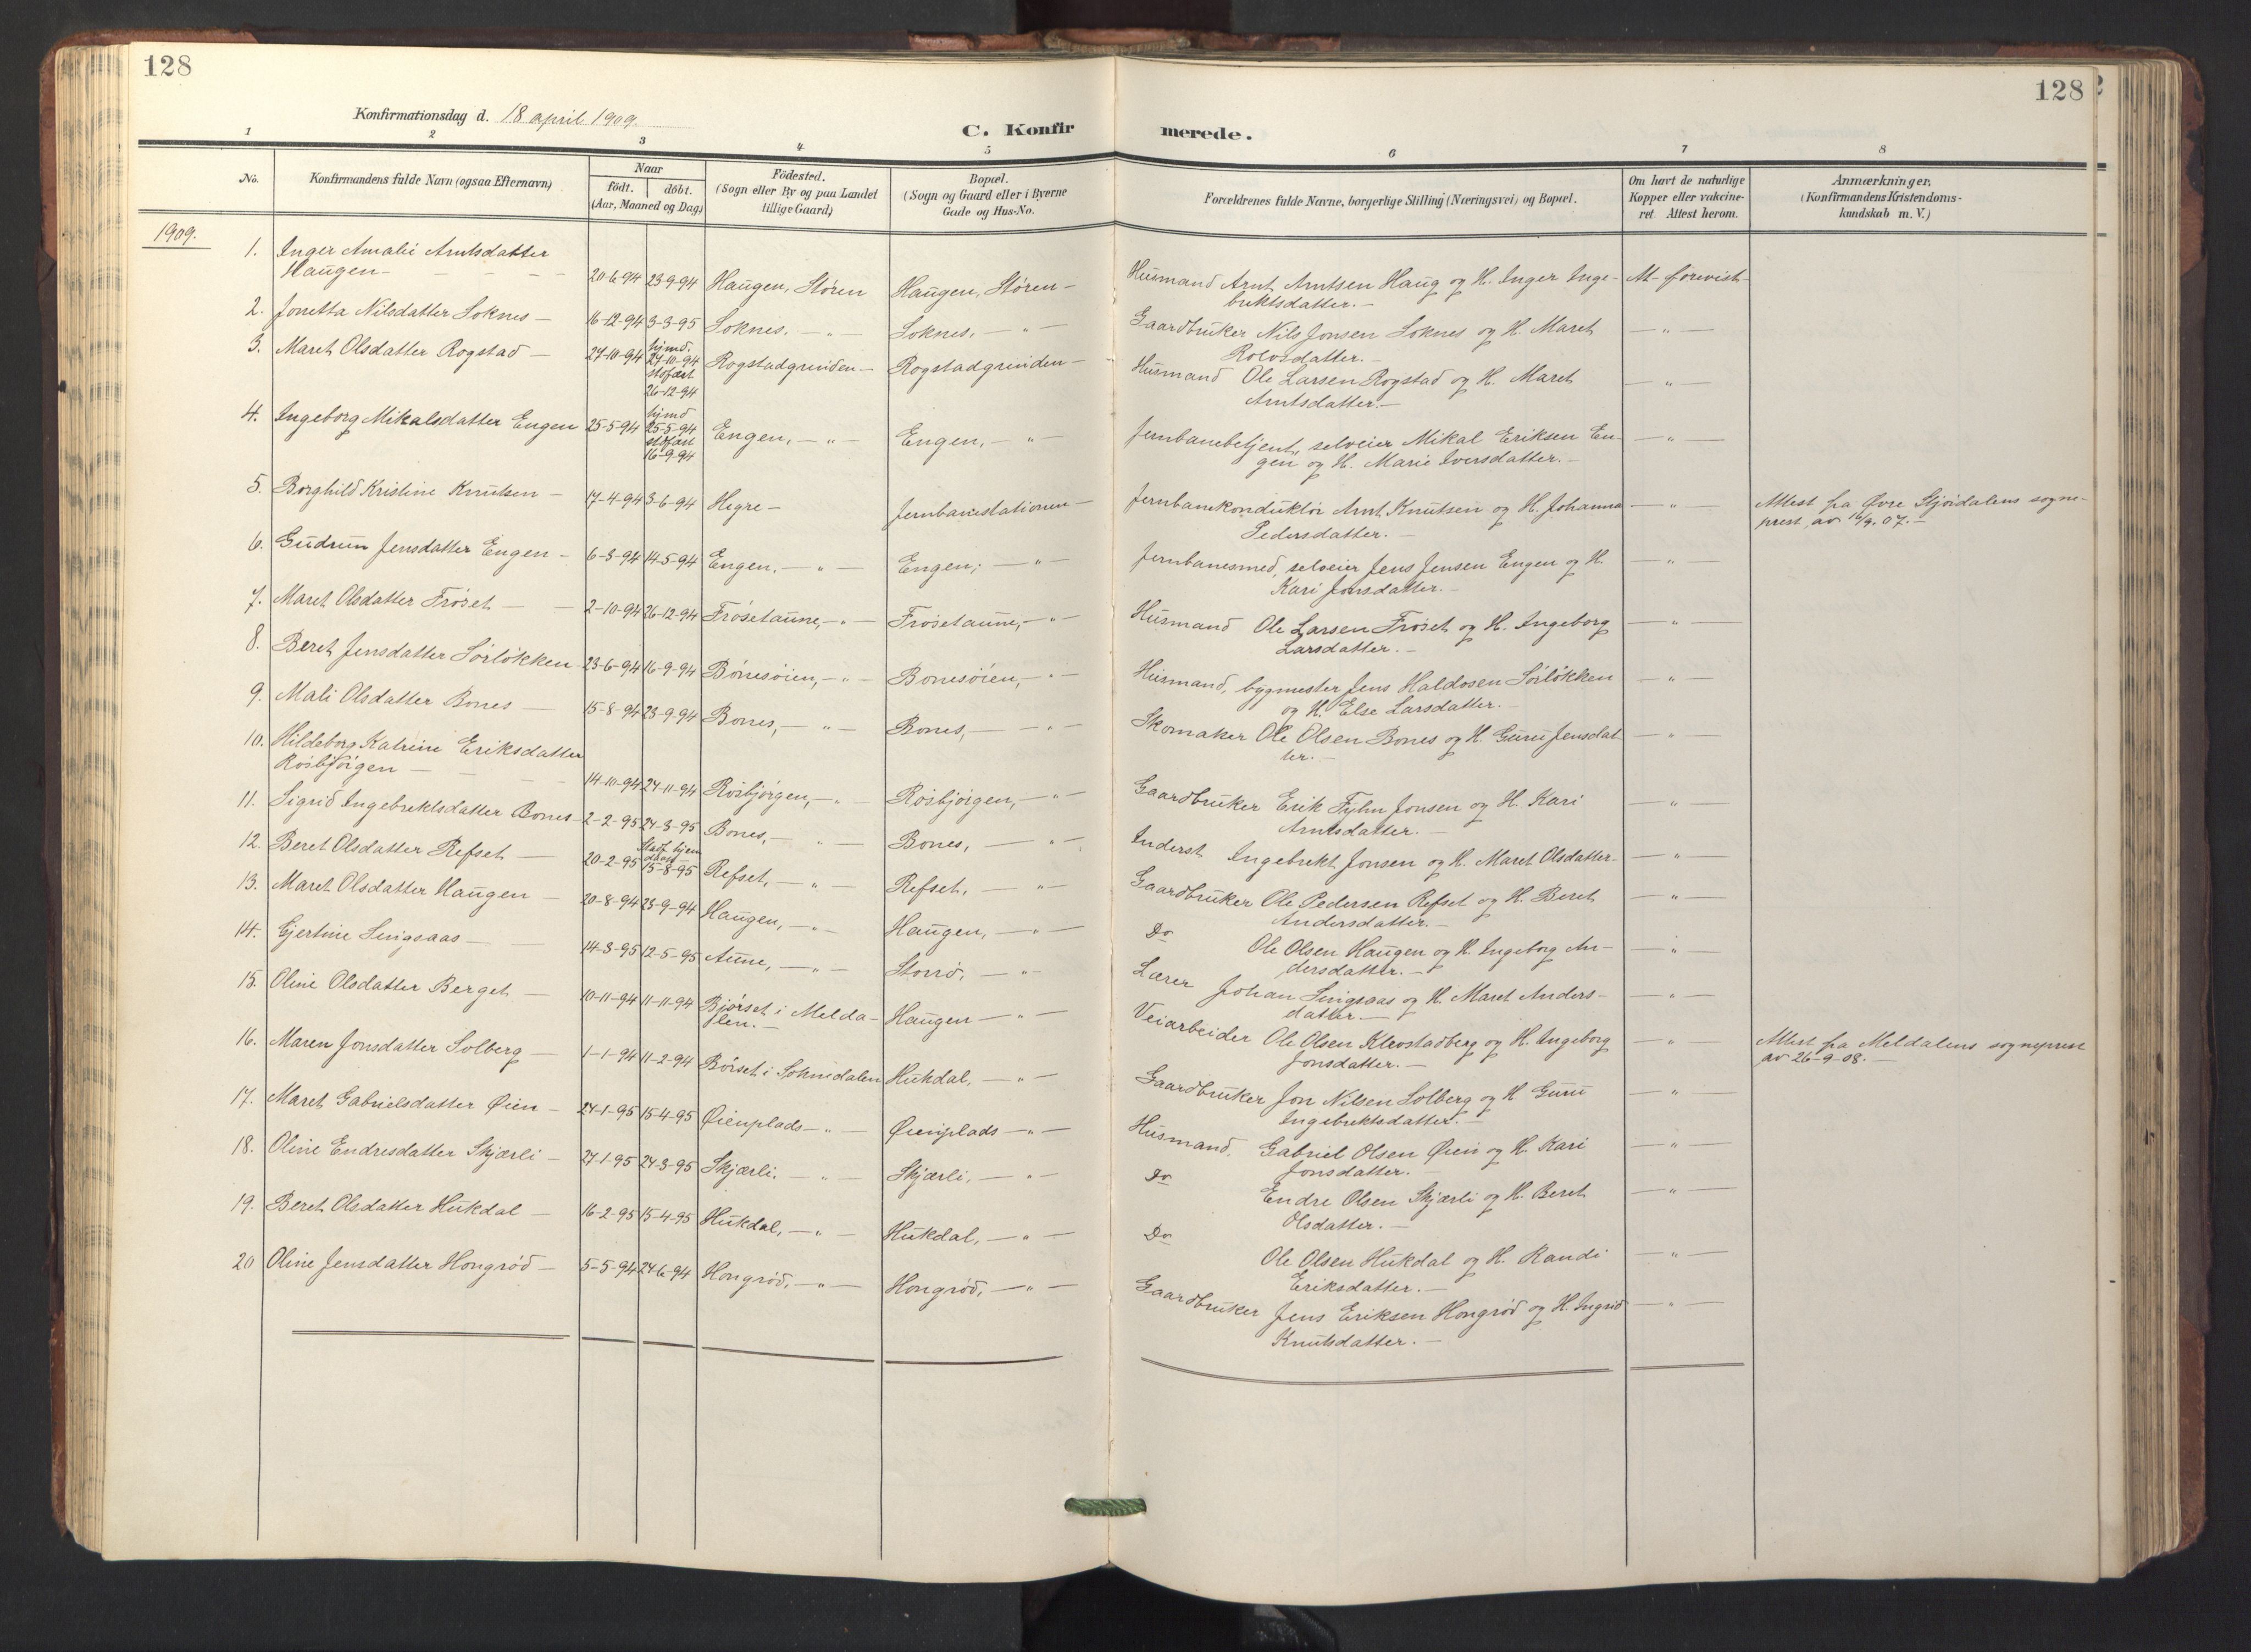 128
128
Konfirmationsdag d. 18 april 1909.
C. Konfirmerede.
1 2 3 4 5 6 7 8
No.
Konfirmandens fulde Navn (ogsaa Efternavn)
Naar
födt. döbt.
(Aar, Maaned og Dag)
Födested.
(Sogn eller By og paa Landet
tillige Gaard)
Bopæl.
(Sogn og Gaard eller i Byerne
Gade og Hus-No.
Forældrenes fulde Navne, borgerlige Stilling (Næringsvei) og Bopæl.
Om havt de naturlige
Kopper eller vakcine-
ret. Attest herom.
Anmærkninger,
(Konfirmandens Kristendoms-
kundskab m. V.)
1909.
1. Inger Amalie Arntsdatter
Haugen — 20-6-94 23-9-94 Haugen, Støren Haugen, Støren — Husmand Arnt Arntsen Haug og H. Inger Inge- At. forevist
brektsdatter. —
2. Jonetta Nilsdatter Soknes — 16-12-94 3-3-95 Soknes, — " — Soknes, — " — Gaardbruker Nils Jonsen Soknes og H. Maret — " —
Rolosdatter. —
3. Maret Olsdatter Rogstad — 27-10-94 hjmd. 27-10-94 stadfæst 26-12-94 Rogstadgrinden — Rogstadgrinden — Husmand Ole Larsen Rogstad og H. Maret — " —
Arntsdatter. —
4. Ingeborg Mikalsdatter Engen 25-5-94 hjmd 25-5-94 stadfæst 16-9-94 Engen, — " — Engen, — " — Jernbanebetjent, selveier Mikal Eriksen En- — " —
gen og H. Marie Iversdatter. —
5. Borghild Kristine Knutsen — 17-4-94 3-6-94 Hegre — Jernbanestationen — Jernbanekonduktör Arnt Knutsen og H. Johanna — " — Attest fra Øvre Stjördalens sogne-
Pedersdatter. — prest av 16/9 07. —
6. Gudrun Jensdatter Engen — 6-3-94 14-5-94 Engen, — " — Engen, — " — Jernbanesmed, selveier Jens Jensen Engen og H. — " —
Kari Jonsdatter. —
7. Maret Olsdatter Fröset — 2-10-94 26-12-94 Frösetaune, — " — Frösetaune, — " — Husmand Ole Larsen Fröset og H. Ingeborg — " —
Larsdatter. —
8. Beret Jensdatter Sörlökken 23-6-94 16-9-94 Bönesöien, — " — Bonesöien, — " — Husmand, bygmester Jens Haldosen Sörlökken — " —
og H. Else Larsdatter. —
9. Mali Olsdatter Bones — 15-8-94 23-9-94 Bones, — " — Bones, — " — Skomaker Ole Olsen Bones og H. Guru Jensdat — " —
ter. —
10. Hildeborg Katrine Eriksdatter
Rösbjörgen — 14-10-94 24-11-94 Rösbjörgen, — " — Rösbjörgen, — " — Gaardbruker Erik Fyhn Jonsen og H. Kari — " —
Arntsdatter. —
11. Sigrid Ingebrektsdatter Bones — 2-2-95 24-3-95 Bones, — " — Bones, — " — Inderst Ingebrekt Jonsen og H. Maret Olsdatter — " —
12. Beret Olsdatter Refset — 20-2-95 15-8-95 Refset, — " — Refset, — " — Gaardbruker Ole Pedersen Refset og H. Beret — " —
Andersdatter. —
13. Maret Olsdatter Haugen — 20-8-94 23-9-94 Haugen, — " — Haugen, — " — Do Ole Olsen Haugen og H. Ingeborg An- — " —
dersdatter. —
14. Gjertine Singsaas — 14-3-95 12-5-95 Aune, — " — Storrö, — " — Lærer Johan Singsaas og H. Maret Anders- — " —
datter. —
15. Oline Olsdatter Berget — 10-11-94 11-11-94 Bjørset i Melda- Haugen — " — Veiarbeider Ole Olsen Klevstadberg og H. Ingeborg — " — Attest fra Meldalens sogneprest
len. — Jonsdatter. — av 26-9-08. —
16. Maren Jonsdatter Solberg — 1-1-94 11-2-94 Börset i Soknedalen Hukdal, — " — Gaardbruker Jon Nilsen Solberg og H Guru — " —
Ingebrektsdatter. —
17. Maret Gabrielsdatter Øien — 24-1-95 15-4-95 Øienplads — " — Øienplads — " — Husmand, Gabriel Olsen Øien og H. Kari — " —
Jonsdatter. —
18. Oline Endresdatter Skjærli — 27-1-95 24-3-95 Skjærli, — " — Skjærli, — " — Do Endre Olsen Skjærli og H. Beret — " —
Olsdatter. —
19. Beret Olsdatter Hukdal — 16-2-95 15-4-95 Hukdal, — " — Hukdal, — " — Do Ole Olsen Hukdal og H. Randi — " —
Eriksdatter. —
20 Oline Jensdatter Hongröd — 5-5-94 24-6-94 Hongröd, — " — Hongröd, — " — Gaardbruker Jens Eriksen Hongröd og H. Ingrid — " —
Knutsdatter. —